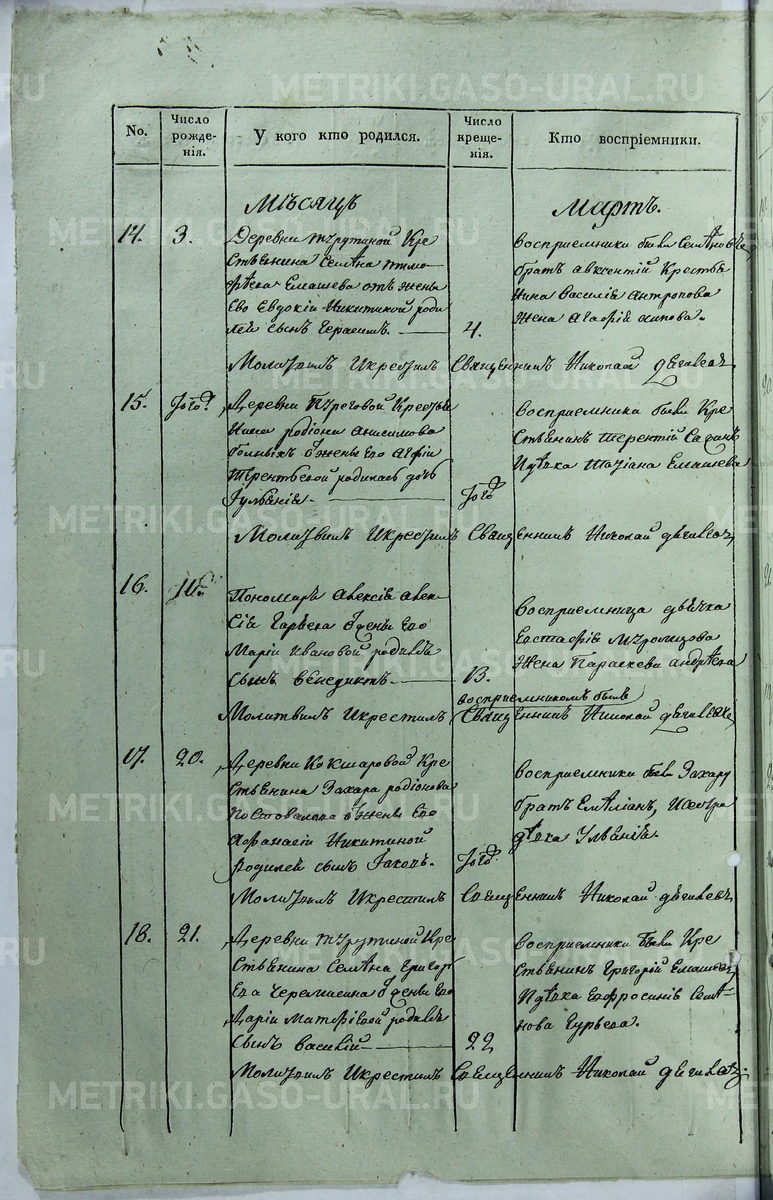 METRIKI.GASO-URAL.RU
No.
Число рожденія.
У кого кто родился.
Число крещенія.
Кто воспріемники.
Мѣсяцъ Мартъ.
14. 3. Деревни Трутиной Кре
стьянина Семѣна Тимо
фѣева Емашева отъ жены
Ево Евдокіи Никитиной роди
лся сынъ Герасимъ. 4.
восприемники были Семѣновъ
братъ авксентій Крестья
нина Василія Антропова
жена Агафія
Молитвилъ Икрестилъ Священникъ Николай
15. Того Деревни Крестья
нина родіона анисимова
жены Ево
Терентьевой родилась дочь
Іуліанія Того
восприемника были Кре
стьянинъ Терентій
Идѣвка Татіана Емашева
Молитвилъ Икрестилъ Священникъ Николай
16. Пономаря Алексія Алек
сія жены Ево
Маріи Ивановой родился
сынъ Венедиктъ. 13.
восприемница дьячка
Евстафія
жена Параскева Андрѣева
восприемникомъ былъ
Молитвилъ Икрестилъ Священникъ Николай
17. 20. Деревни Кокшаровой Кре
стьянина Захара родіонова
Постовалова жены Ево
Афанасіи Никитиной
родился сынъ Іаковъ. Того
восприемники были Захару
братъ Емѣліанъ, Исестра
дѣвка Ульянія.
Молитвилъ Икрестилъ Священникъ Николай
18. 21. Деревни Трутиной Кре
стьянина Семѣна Григорь
ева Черемисина жены Ево
Даріи Матфіевой родился
сынъ василій 22
восприемники были Кре
стьянинъ Григорій Емашевъ,
Идѣвка Евфросинія Семѣ
нова Гурьева.
Молитвилъ Икрестилъ Священникъ Николай